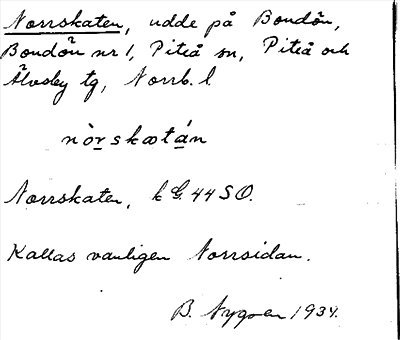 Norrskaten, udde på Bondön,
Bondön nr 1, Piteå sn, Piteå och
Älvsby tg, Norrb. l
nòrskætán
Norrskaten, k G. 44 SO.
Kallas vanligen Norrsidan.
B. Nygren 1934.